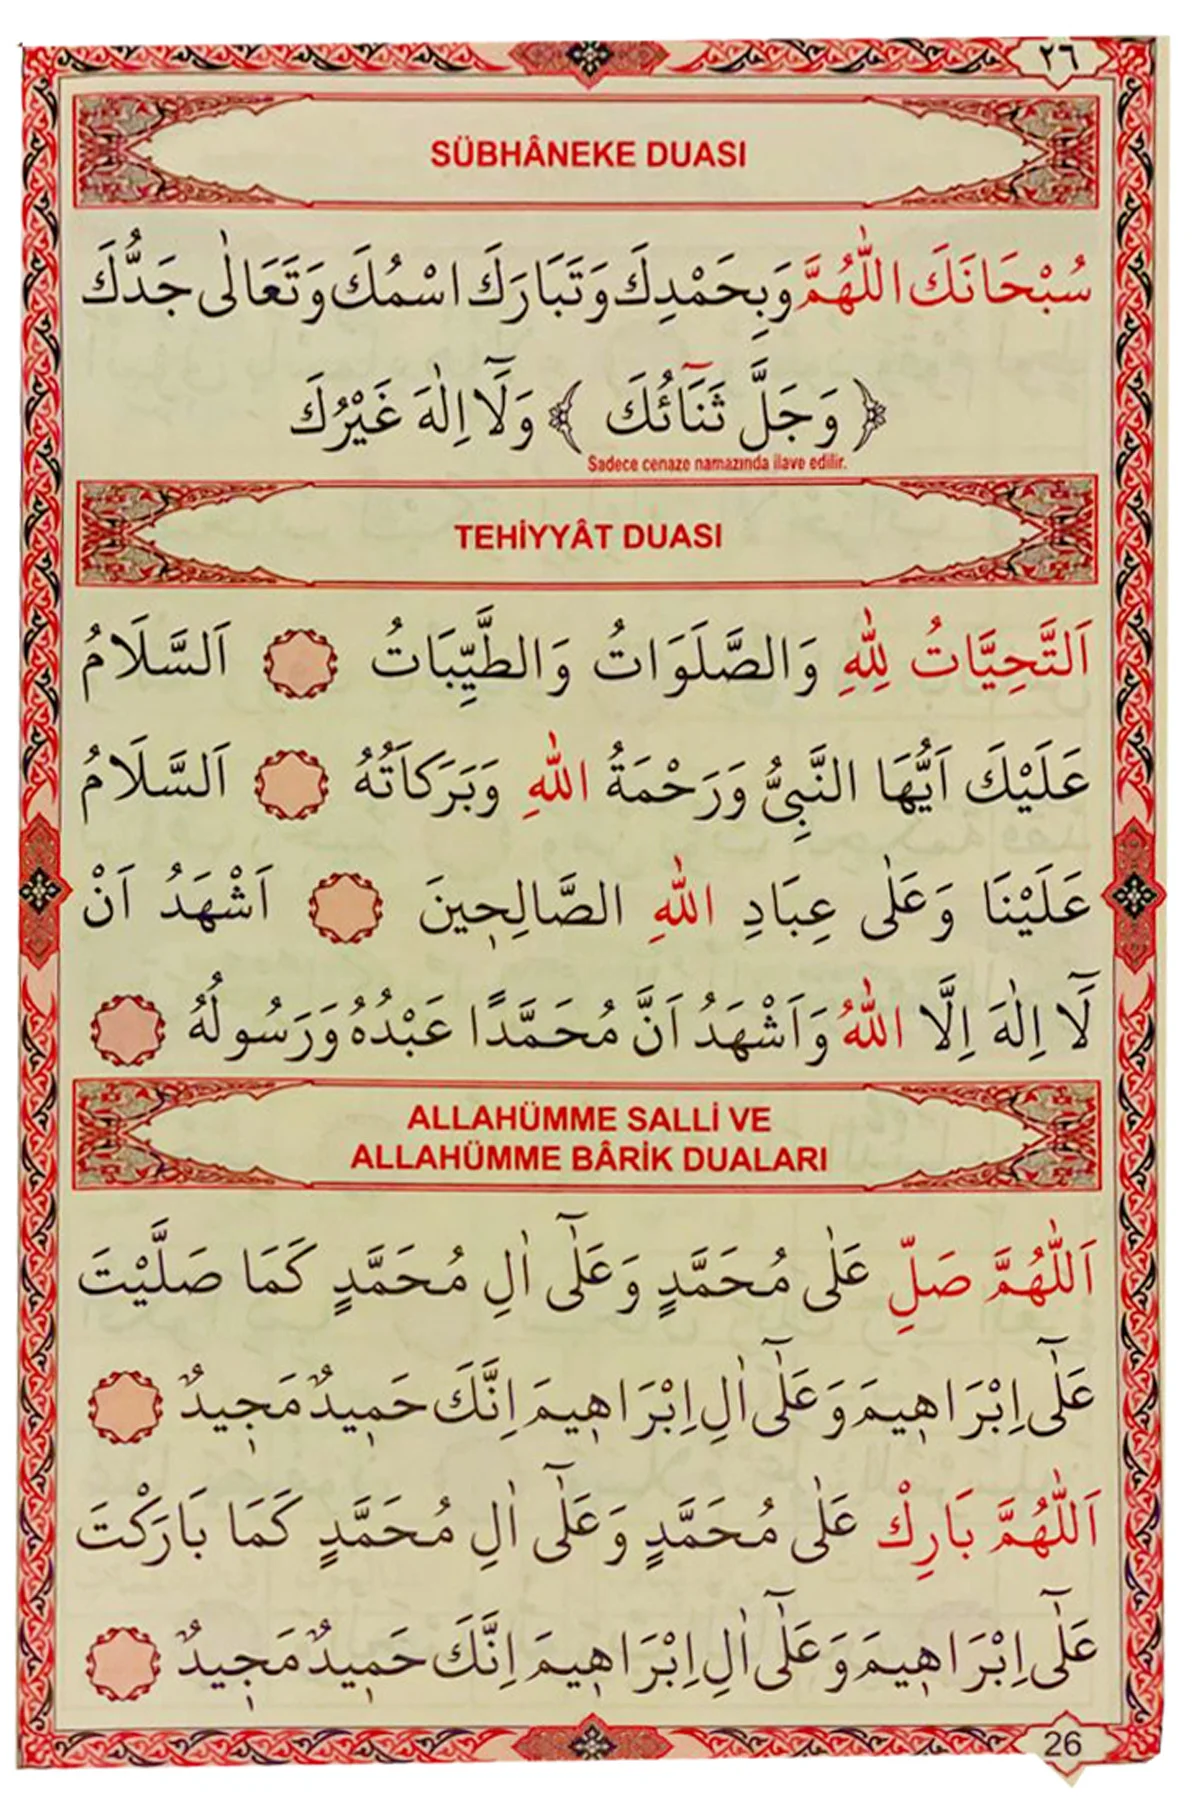 ٢٦
SÜBHÂNEKE DUASI
سُبْحَانَكَ اللّٰهُمَّ وَبِحَمْدِكَ وَتَبَارَكَ اسْمُكَ وَتَعَالٰى جَدُّكَ
﴿ وَجَلَّ ثَنَٓائُكَ ﴾ وَلَٓا اِلٰهَ غَيْرُكَ
Sadece cenaze namazında ilave edilir.
TEHİYYÂT DUASI
اَلتَّحِيَّاتُ لِلّٰهِ وَالصَّلَوَاتُ وَالطَّيِّبَاتُ اَلسَّلَامُ
عَلَيْكَ اَيُّهَا النَّبِىُّ وَرَحْمَةُ اللّٰهِ وَبَرَكَاتُهُ اَلسَّلَامُ
عَلَيْنَا وَعَلٰى عِبَادِ اللّٰهِ الصَّالِحٖينَ اَشْهَدُ اَنْ
لَٓا اِلٰهَ اِلَّا اللّٰهُ وَاَشْهَدُ اَنَّ مُحَمَّدًا عَبْدُهُ وَرَسُولُهُ
ALLAHÜMME SALLİ VE
ALLAHÜMME BÂRİK DUALARI
اَللّٰهُمَّ صَلِّ عَلٰى مُحَمَّدٍ وَعَلٰٓى اٰلِ مُحَمَّدٍ كَمَا صَلَّيْتَ
عَلٰٓى اِبْرَاهٖيمَ وَعَلٰٓى اٰلِ اِبْرَاهٖيمَ اِنَّكَ حَمٖيدٌ مَجٖيدٌ
اَللّٰهُمَّ بَارِكْ عَلٰى مُحَمَّدٍ وَعَلٰٓى اٰلِ مُحَمَّدٍ كَمَا بَارَكْتَ
عَلٰٓى اِبْرَاهٖيمَ وَعَلٰٓى اٰلِ اِبْرَاهٖيمَ اِنَّكَ حَمٖيدٌ مَجٖيدٌ
26